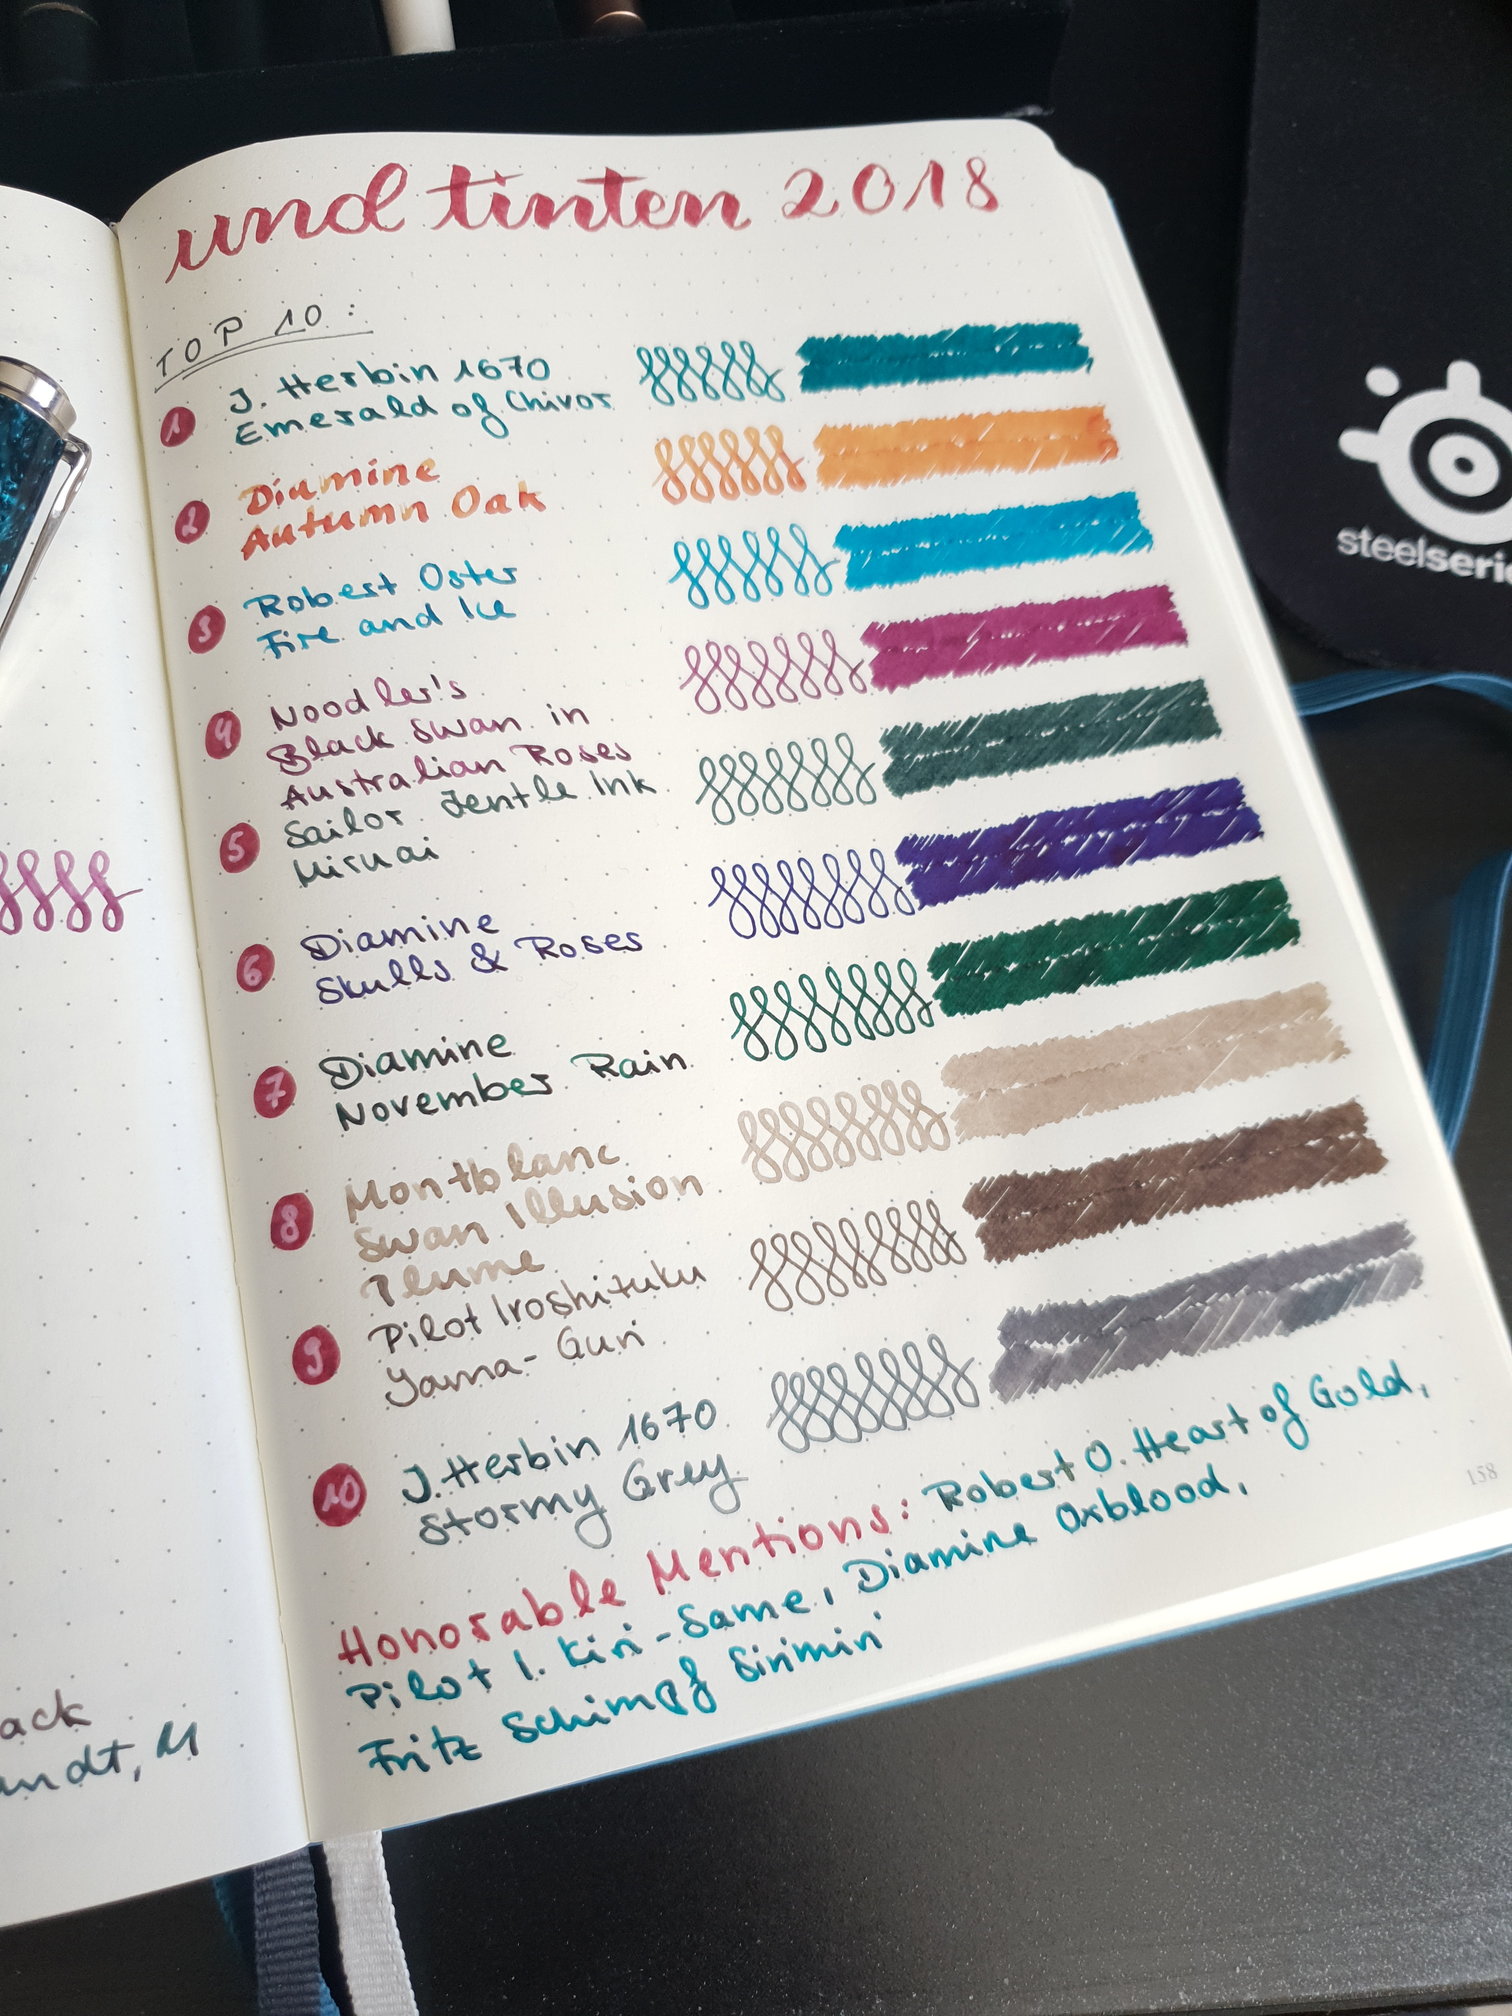 und Tinten 2018
TOP 10:
1 J. Herbin 1670
Emerald of Chivor
2 Diamine
Autumn Oak
3 Robert Oster
Fire and Ice
4 Noodler's
Black Swan in
Australian Roses
5 Sailor Jentle Ink
Miruai
6 Diamine
Skulls & Roses
7 Diamine
November Rain
8 Montblanc
Swan Illusion
Plume
9 Pilot Iroshizuku
Yama-Guri
10 J. Herbin 1670
Stormy Grey
Honorable Mentions: Robert O. Heart of Gold,
Pilot I. Kiri-Same, Diamine Oxblood,
Fritz Schimpf Sirimiri
158
steelseri